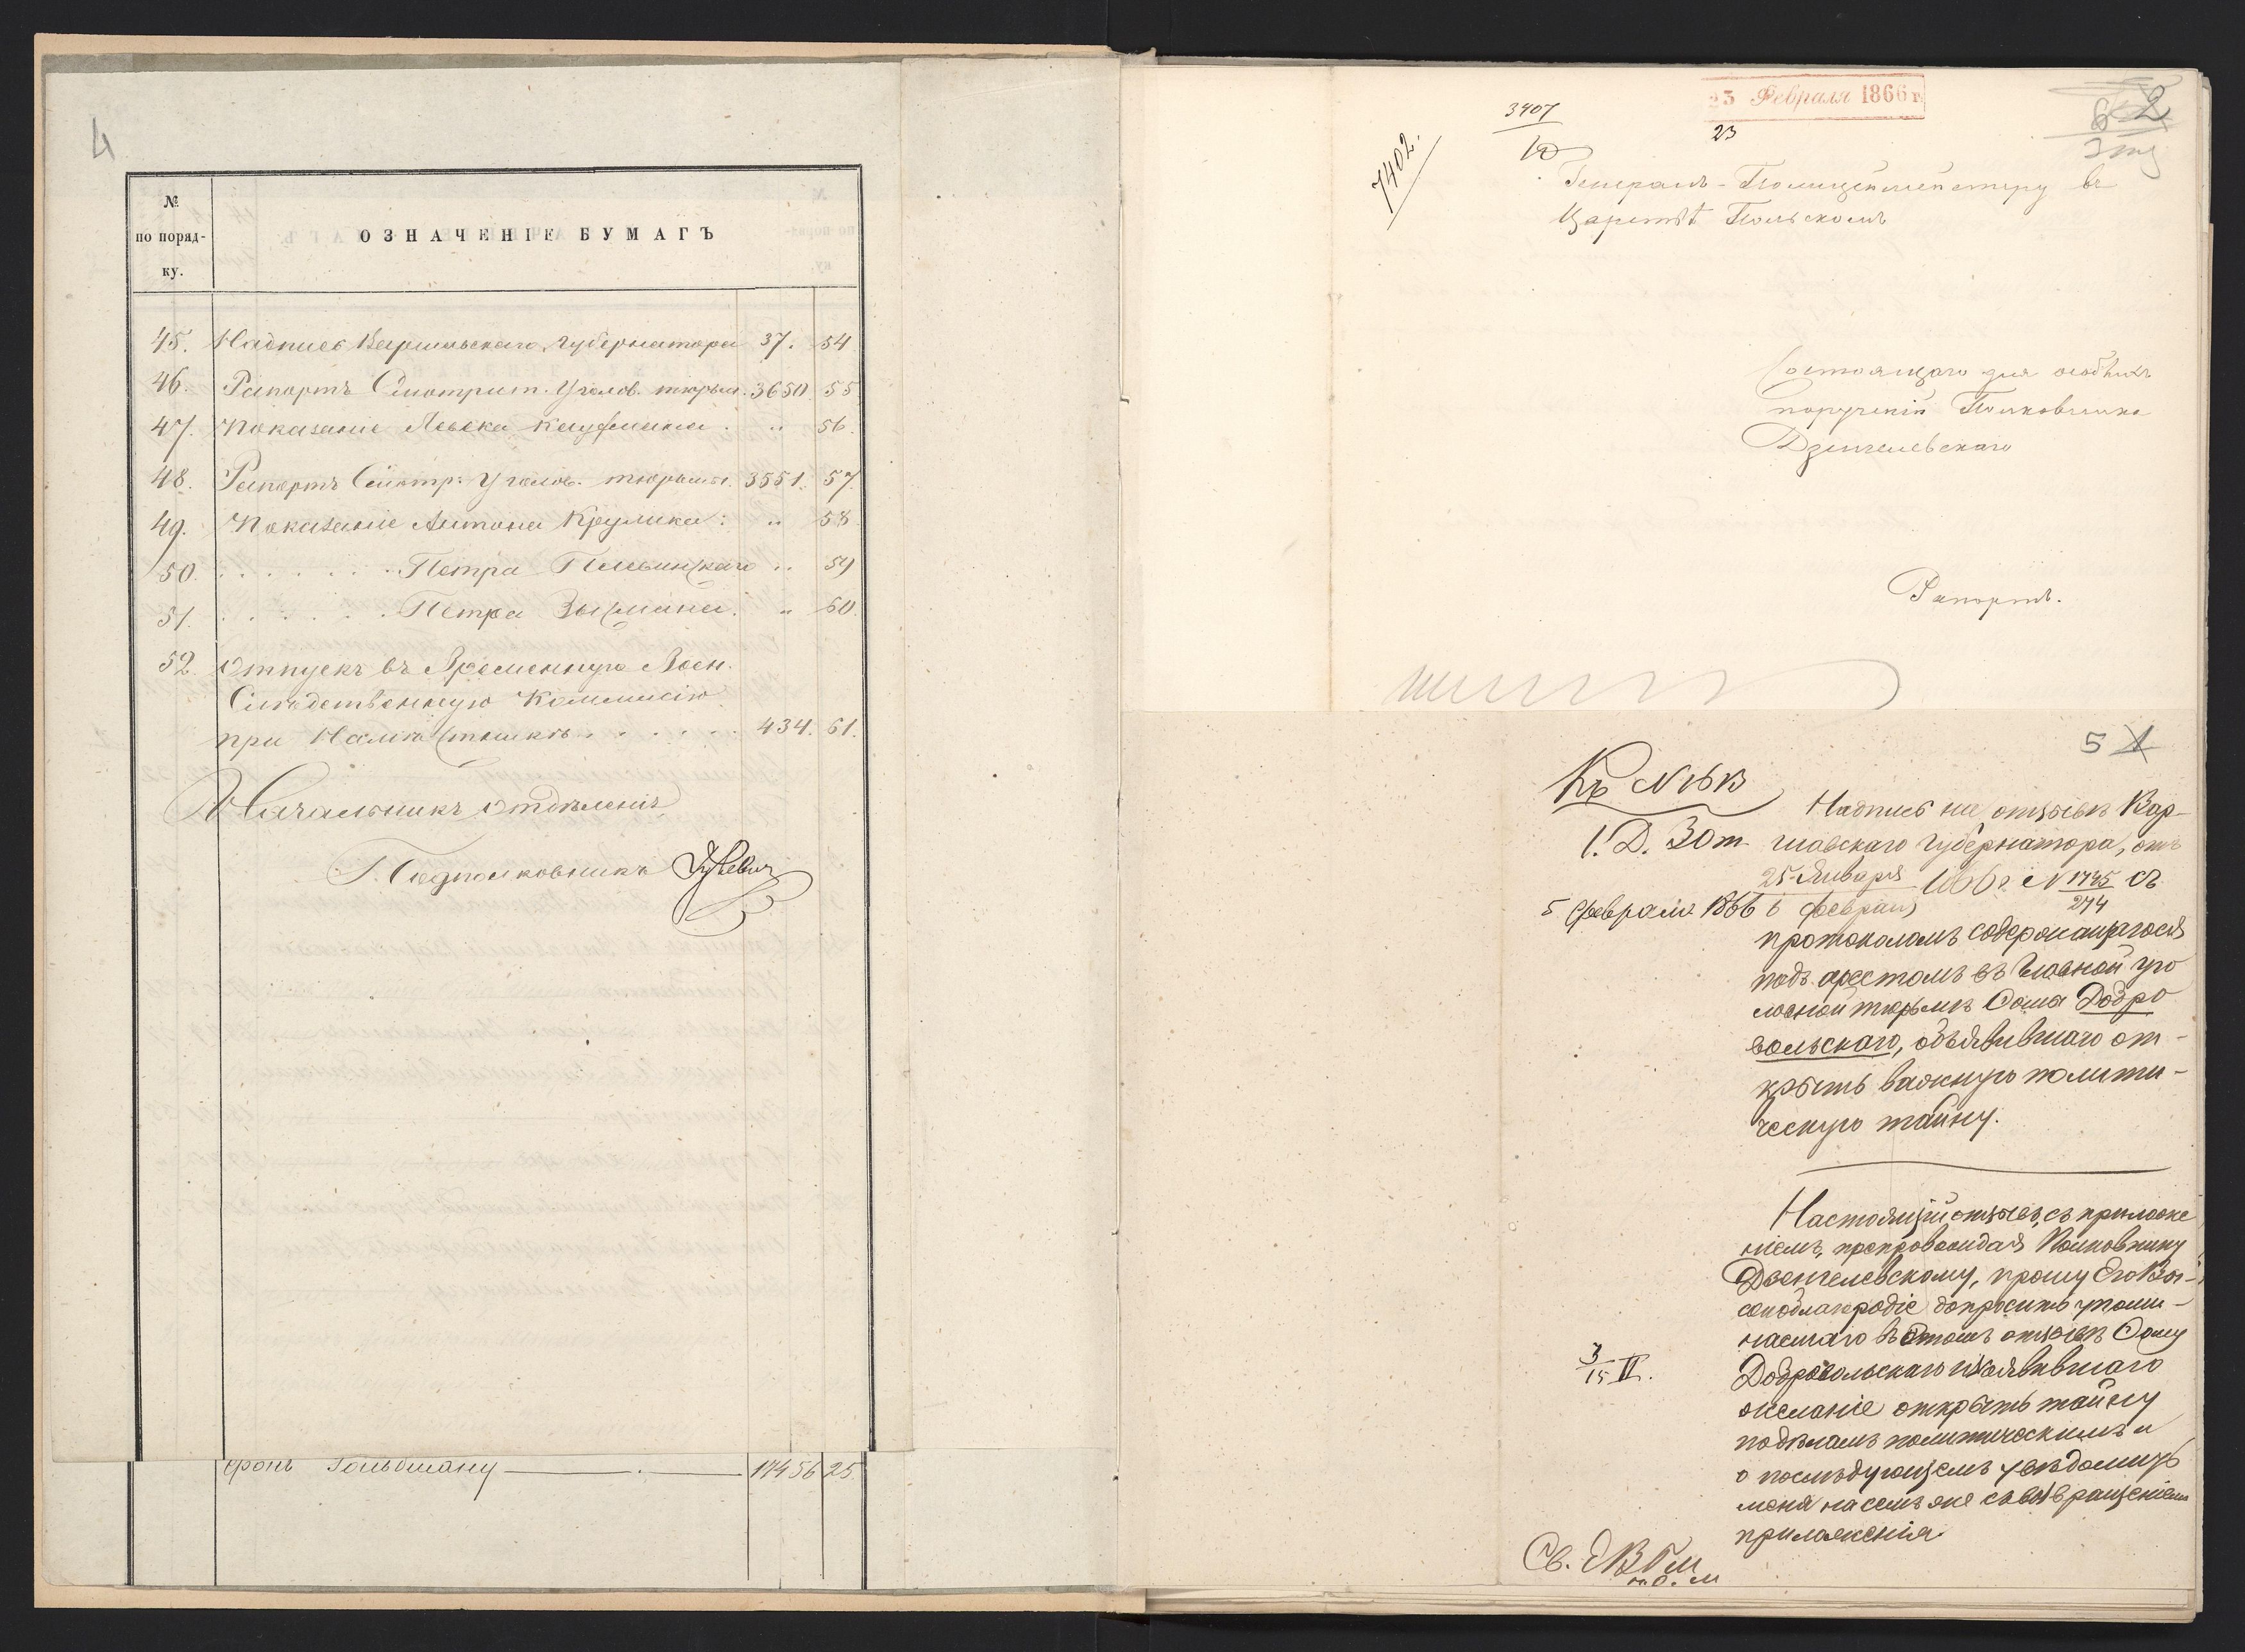 4
№
по поряд-
ку.
ОЗНАЧЕНІЕ БУМАГЪ
45. Надпись Варшавскаго Губернатора 37. 54
46. Рапортъ Смотрит. Уголов. тюрьм. 3650 55
47. Показаніе Левека Кауфмана . „ 56.
48. Рапортъ Смотр. Уголов. тюрьмы. 3551. 57.
49. Показаніе Антона Крулика: „ 58
50. . . . . . . Петра „ 59
51. . . . . . . Петра Зысмана. „ 60.
52. Отпускъ въ Временную Воен.
Слѣдственную Коммисію
при Намѣстникѣ . . . . . . 434. 61.
Начальникъ Отдѣленія
Подполковникъ
фонъ Гольдману 17456 25
23 Февраля 1866 г.
3407
10
23
7402.
6 2
Генералъ-Полицеймейстеру въ
Царствѣ Польскомъ
Состоящаго для особыхъ
порученій Полковника
Дзенгелевскаго
Рапортъ.
5 1
Къ №
1. Д. 3 От.
5 Февраля 1866
Надпись на отзывѣ Вар-
шавскаго Губернатора, отъ
25 Января / 6 Февраля 1866 г. № 1745/274 съ
протоколомъ содержащагося
подъ арестомъ въ Главной уго
ловной тюрьмѣ Сома Добро
вольскаго, объявившаго от-
крыть важную полити-
ческую тайну.
Настоящій отзывъ, съ приложе
ніемъ, препровождая Полковнику
Дзенгелевскому, прошу Его Вы-
сокоблагородіе допросить упоми-
наемаго въ этомъ отзывѣ Сому
Добровольскаго изъявившаго
желаніе открыть тайну
по дѣламъ политическимъ и
о послѣдующемъ увѣдомить
меня на семъ же съ возвращеніемъ
приложенія.
3/15 II.
Св.